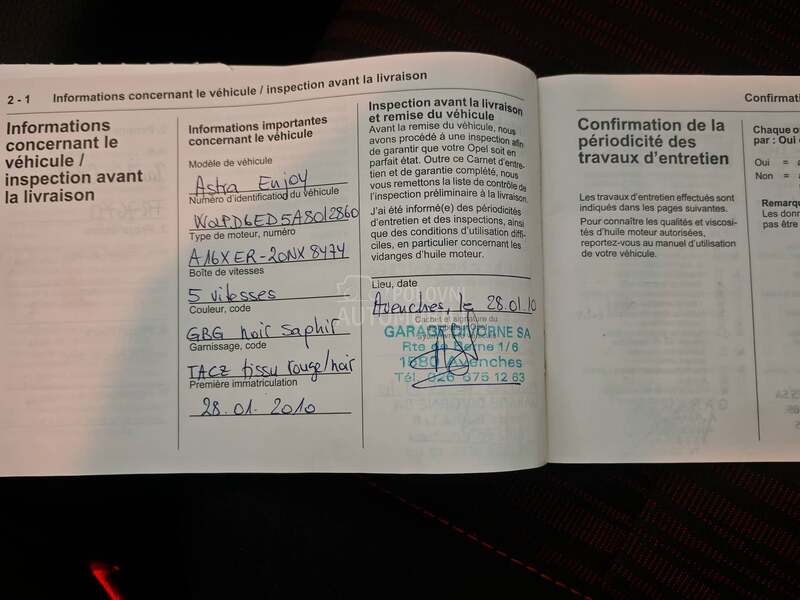 2 - 1 Informations concernant le véhicule / inspection avant la livraison
Informations
concernant le
véhicule /
inspection avant
la livraison
Informations importantes
concernant le véhicule
Modèle de véhicule
Astra Enjoy
Numéro d'identification du véhicule
W0LPD6ED5A8012860
Type de moteur, numéro
A16XER-20NX8474
Boîte de vitesses
5 vitesses
Couleur, code
GBG noir saphir
Garnissage, code
TACZ tissu rouge/noir
Première immatriculation
28.01.2010
Inspection avant la livraison
et remise du véhicule
Avant la remise du véhicule, nous
avons procédé à une inspection afin
de garantir que votre Opel soit en
parfait état. Outre ce Carnet d'entre-
tien et de garantie complété, nous
vous remettons la liste de contrôle de
l'inspection préliminaire à la livraison.
J'ai été informé(e) des périodicités
d'entretien et des inspections, ainsi
que des conditions d'utilisation diffi-
ciles, en particulier concernant les
vidanges d'huile moteur.
Lieu, date
Avenches, le 28.01.10
Cachet et signature du
GARAGE DIVORNE SA
Rte de Berne 1/6
1580 Avenches
Tél. 026 675 12 63
POLOVNI
AUTOMOBILI
Confirmation de la
périodicité des
travaux d'entretien
Les travaux d'entretien effectués sont
indiqués dans les pages suivantes.
Pour connaître les qualités et viscosi-
tés d'huile moteur autorisées,
reportez-vous au manuel d'utilisation
de votre véhicule.
Confirmati
Chaque o
par : Oui
Oui =
Non =
Remarqu
Les donn
pas être